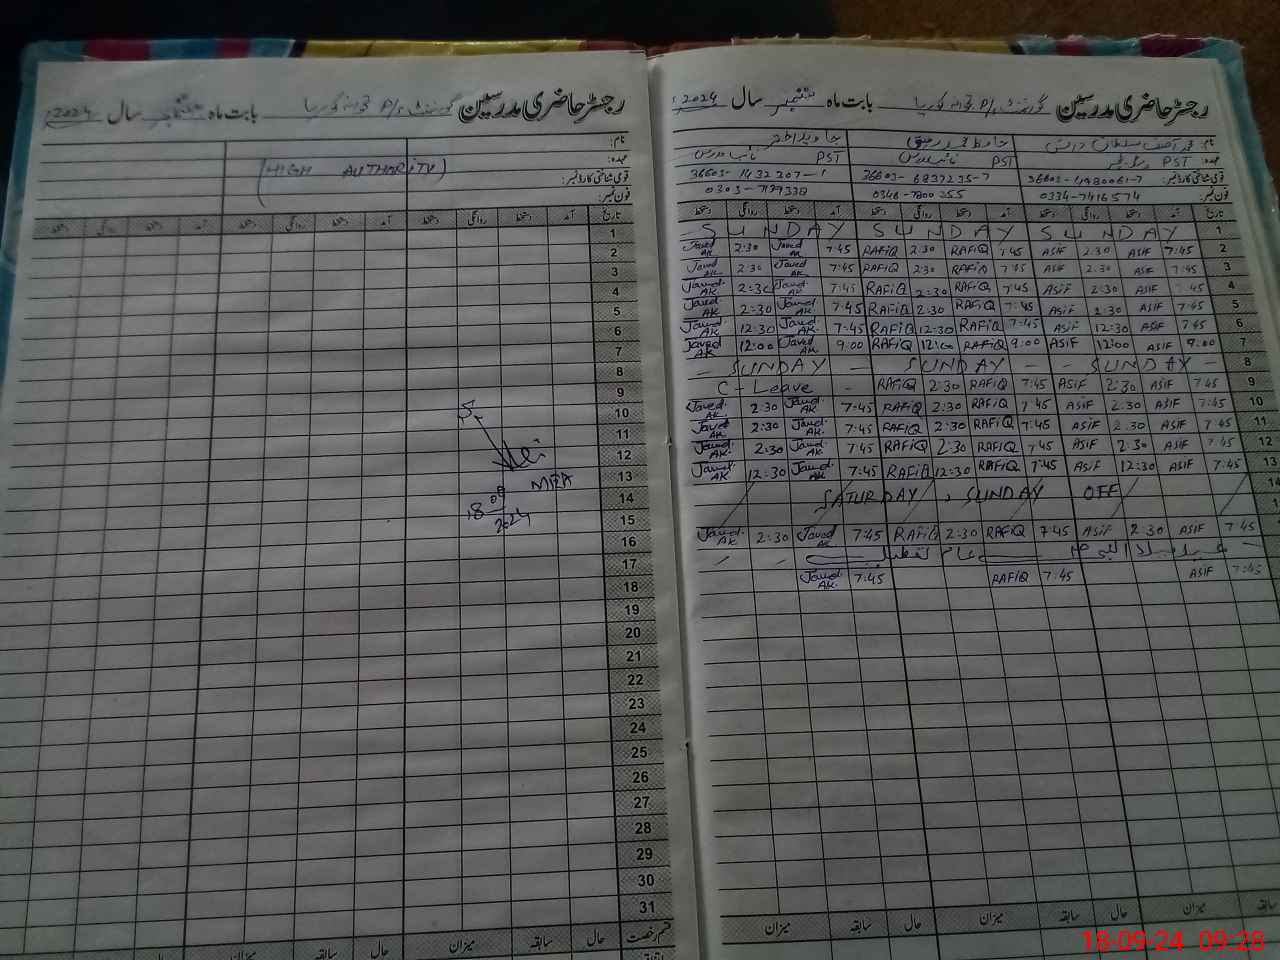 رجسٹر حاضری مدرسین گورنمنٹ P/S بابت ماہ ستمبر سال 2024
نام:
عہدہ:
قومی شناختی کارڈ نمبر:
فون نمبر:
(HIGH AUTHORITY)
تاریخ آمد دستخط روانگی دستخط آمد دستخط روانگی دستخط آمد دستخط روانگی دستخط
1
2
3
4
5
6
7
8
9
10
11
12
13
14
15
16
17
18
19
20
21
22
23
24
25
26
27
28
29
30
31
MEA
18-09
2024
قسم رخصت حال سابقہ میزان حال سابقہ میزان حال سابقہ میزان
رجسٹر حاضری مدرسین گورنمنٹ P/S بابت ماہ ستمبر سال 2024
نام: محمد آصف سلطان حافظ محمد رفیق جاوید اختر
عہدہ: PST PST نائب مدرس PST نائب مدرس
قومی شناختی کارڈ نمبر:
فون نمبر: 0334-7416574
تاریخ آمد دستخط روانگی دستخط آمد دستخط روانگی دستخط آمد دستخط روانگی دستخط
SUNDAY SUNDAY SUNDAY 1
Javed AK 2:30 Javed AK 7:45 RAFiQ 2:30 RAFiQ 7:45 ASiF 2:30 ASiF 7:45 2
Javed AK 2:30 Javed AK 7:45 RAFiQ 2:30 RAFiQ 7:45 ASiF 2:30 ASiF 7:45 3
Javed AK 2:30 Javed AK 7:45 RAFiQ 2:30 RAFiQ 7:45 ASiF 2:30 ASiF 7:45 4
Javed AK 2:30 Javed AK 7:45 RAFiQ 2:30 RAFiQ 7:45 ASiF 2:30 ASiF 7:45 5
Javed AK 12:30 Javed AK 7:45 RAFiQ 12:30 RAFiQ 7:45 ASiF 12:30 ASiF 7:45 6
Javed AK 12:00 Javed AK 9:00 RAFiQ 12:00 RAFiQ 9:00 ASiF 12:00 ASiF 9:00 7
- SUNDAY - SUNDAY - - SUNDAY - 8
C - Leave - RAFiQ 2:30 RAFiQ 7:45 ASiF 2:30 ASiF 7:45 9
Javed AK 2:30 Javed AK 7:45 RAFiQ 2:30 RAFiQ 7:45 ASiF 2:30 ASiF 7:45 10
Javed AK 2:30 Javed AK 7:45 RAFiQ 2:30 RAFiQ 7:45 ASiF 2:30 ASiF 7:45 11
Javed AK 2:30 Javed AK 7:45 RAFiQ 2:30 RAFiQ 7:45 ASiF 2:30 ASiF 7:45 12
Javed AK 12:30 Javed AK 7:45 RAFiQ 12:30 RAFiQ 7:45 ASiF 12:30 ASiF 7:45 13
SATURDAY, SUNDAY OFF
Javed AK 2:30 Javed AK 7:45 RAFiQ 2:30 RAFiQ 7:45 ASiF 2:30 ASiF 7:45
عید میلاد النبی عام تعطیل
Javed AK 7:45 RAFiQ 7:45 ASiF 7:45
سابقہ میزان حال سابقہ میزان حال سابقہ میزان
18-09-24 09:28